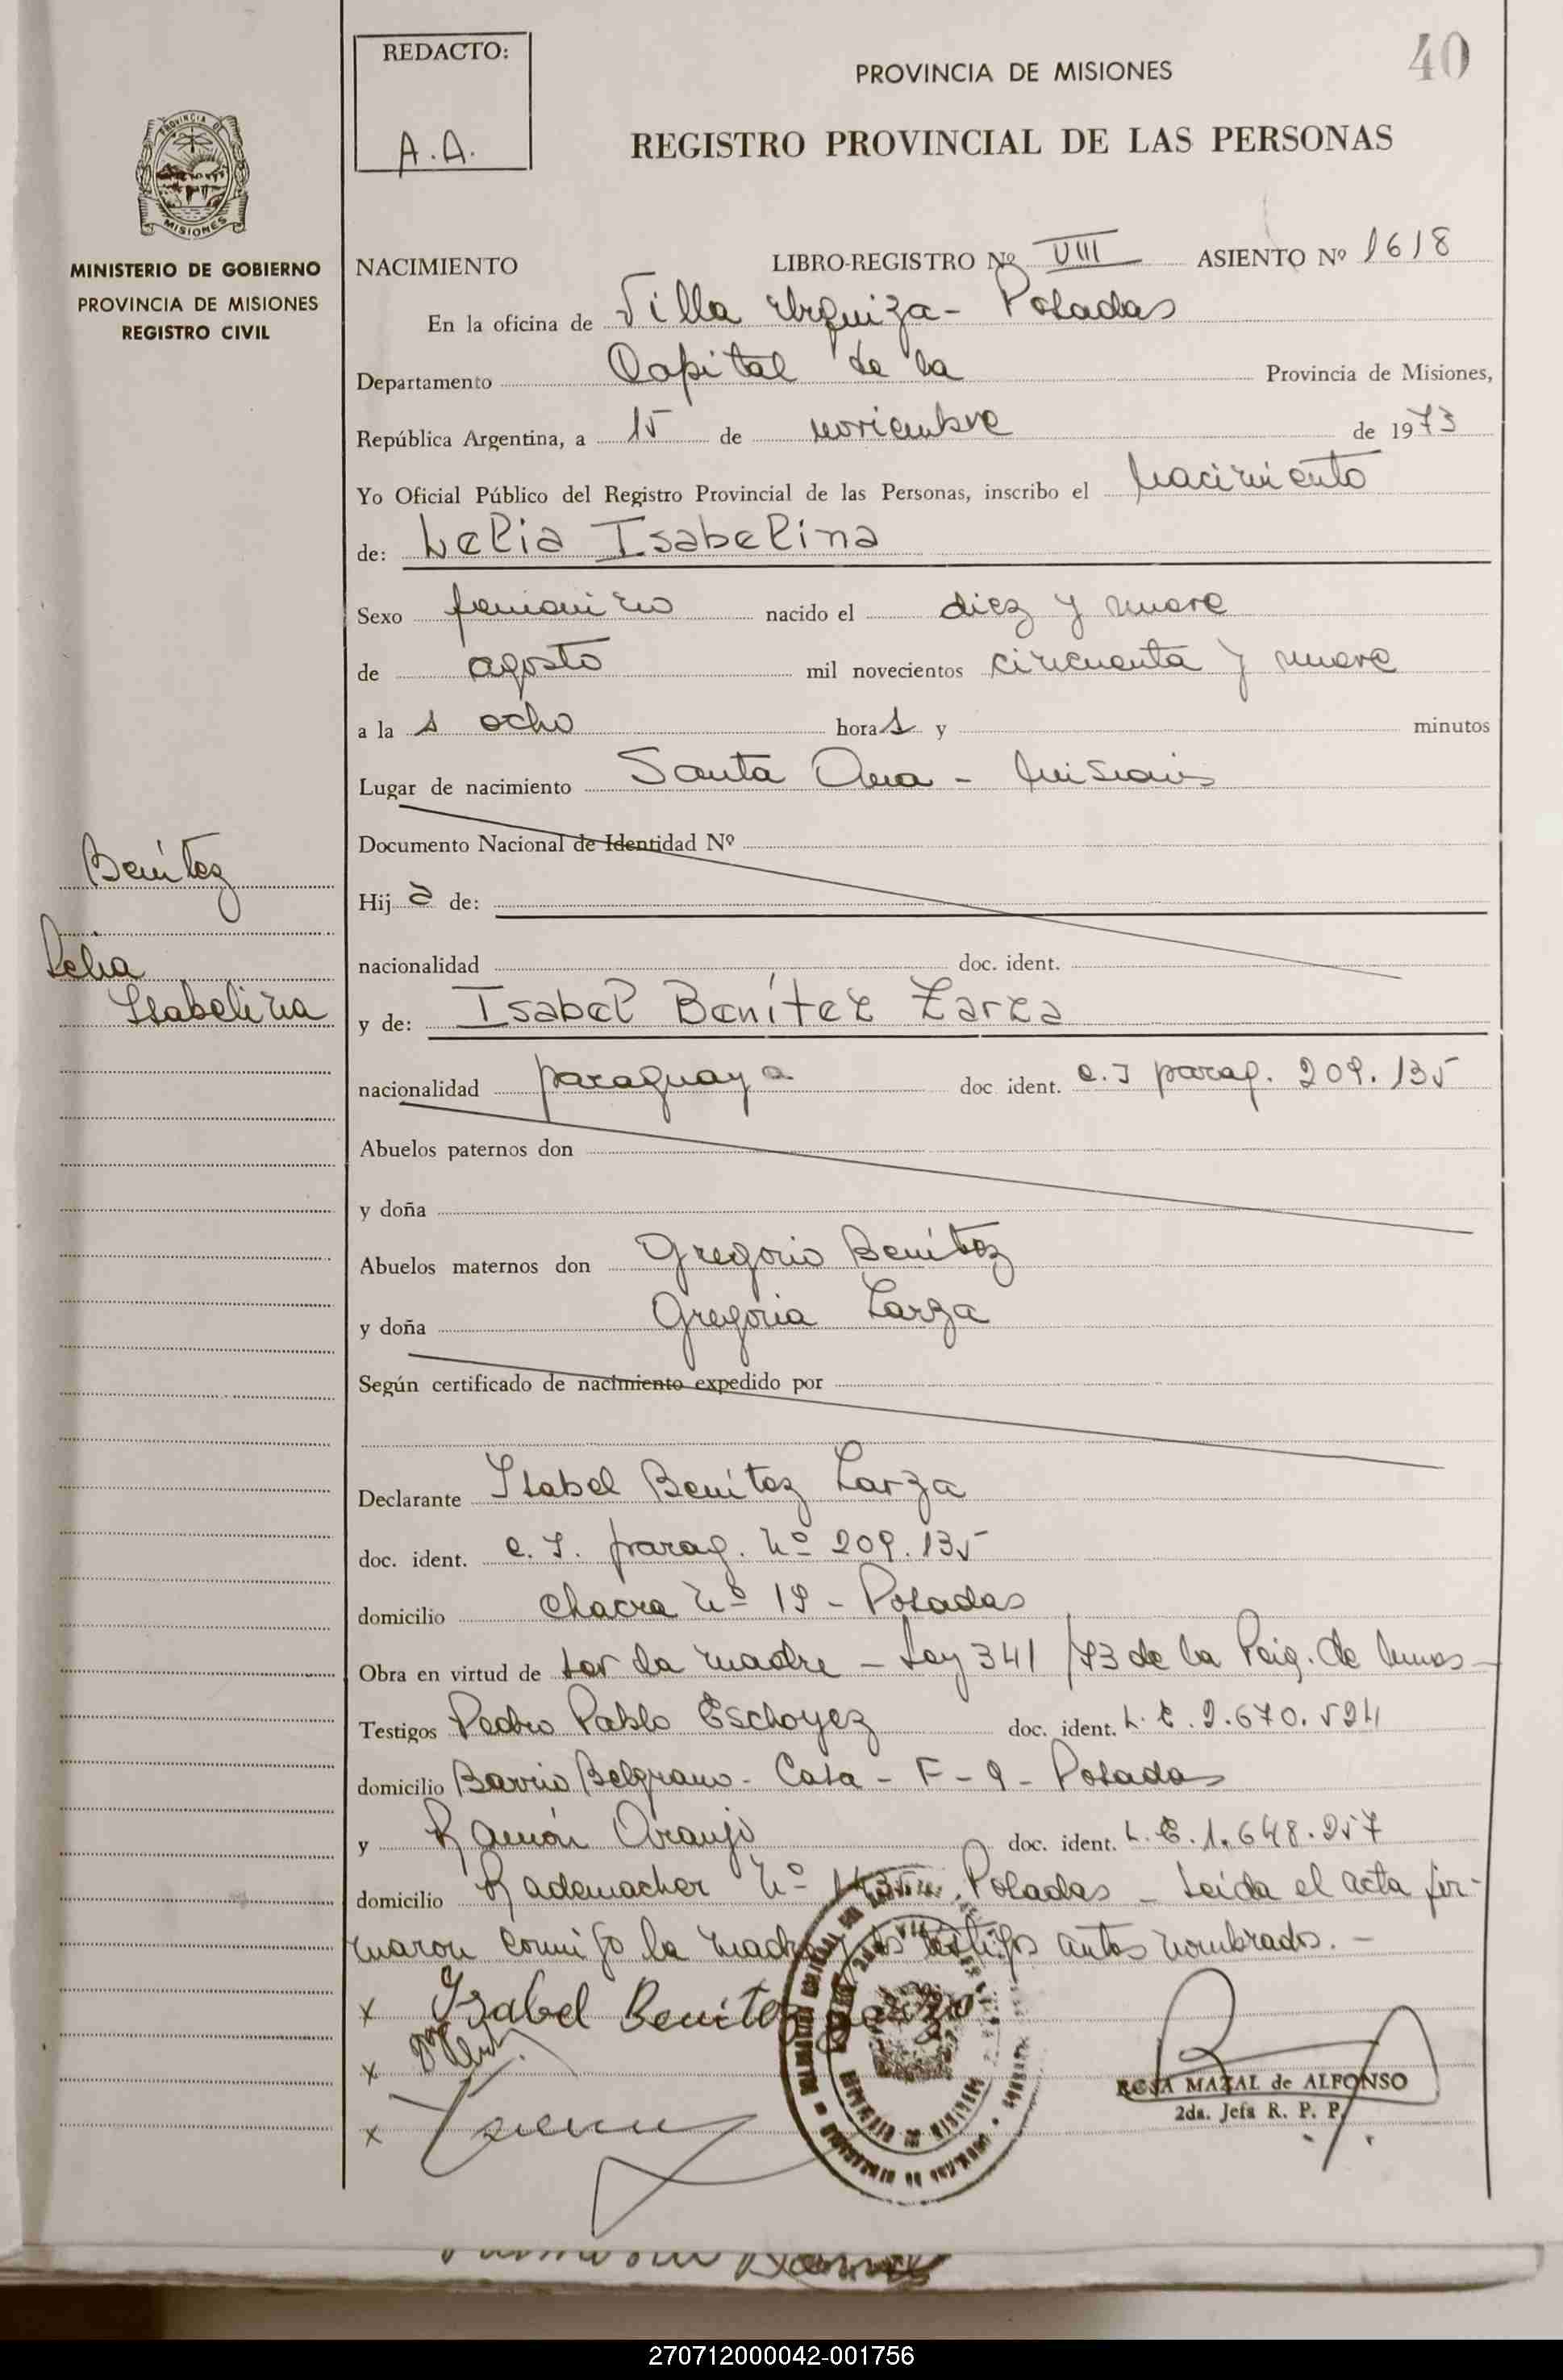 REDACTO:
A.A.
40
PROVINCIA DE MISIONES
REGISTRO PROVINCIAL DE LAS PERSONAS
PROVINCIA DE
MISIONES
MINISTERIO DE GOBIERNO
PROVINCIA DE MISIONES
REGISTRO CIVIL
NACIMIENTO LIBRO-REGISTRO Nº VIII ASIENTO Nº 1618
En la oficina de Villa Urquiza - Posadas
Departamento Capital de la Provincia de Misiones,
República Argentina, a 15 de noviembre de 1973
Yo Oficial Público del Registro Provincial de las Personas, inscribo el Nacimiento
de: Lelia Isabelina
Sexo femenino nacido el diez y nueve
de agosto mil novecientos cincuenta y nueve
a la s ocho hora s y minutos
Lugar de nacimiento Santa Ana - Misiones
Documento Nacional de Identidad Nº
Hij a de:
nacionalidad doc. ident.
y de: Isabel Benítez Zarza
nacionalidad paraguaya doc. ident. C. I parag. 209.135
Abuelos paternos don
y doña
Abuelos maternos don Gregorio Benítez
y doña Gregoria Zarza
Según certificado de nacimiento expedido por
Declarante Isabel Benítez Zarza
doc. ident. C. I. parag. Nº 209.135
domicilio Chacra Nº 19 - Posadas
Obra en virtud de ser la madre - Ley 341/73 de la Reig. de
Testigos Pedro Pablo Eschoyez doc. ident. L. E. 2.670.524
domicilio Barrio Belgrano - Casa - F - 9 - Posadas
y Ramón Araujo doc. ident. L. E. 1.648.257
domicilio Rademacher Nº Posadas - Leída el acta fir-
maron conmigo la madre y los testigos antes nombrados. -
x Isabel Benitez
x
x
ROSA MAZAL de ALFONSO
2da. Jefa R. P. P.
Benítez
Lelia
Isabelina
270712000042-001756